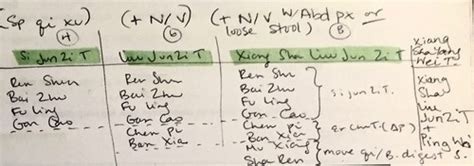 (Sp qi xu) (+ N/V) (+ N/V w/Abd px or
loose stool)
(4) (6) (8)
Si Jun Zi T Liu Jun Zi T Xiang Sha Liu Jun Zi T
Ren Shen Ren Shen Ren Shen
Bai Zhu Bai Zhu Bai Zhu
Fu Ling Fu Ling Fu Ling
Gan Cao Gan Cao Gan Cao
Chen Pi Chen pi
Ban Xia Ban Xia
Mu Xiang
Sha Ren
Si jun Zi T.
er chen T. (ΔP)
move qi/B. digest
Xiang
Sha Yang
Wei T.
Xiang
Sha
Liu
Jun Zi T
+
Ping Wei